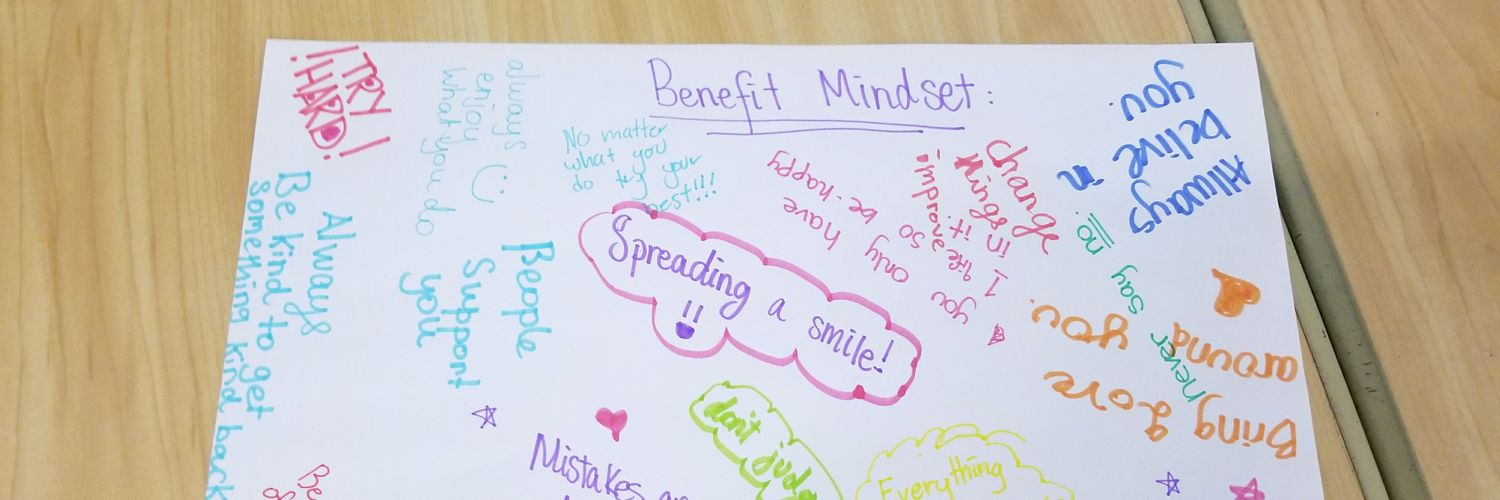 Benefit Mindset:
! TRY !
! HARD !
always
enjoy
what you do
No matter
what you
do try your
best!!!
Always
Be kind to get
something kind back
People
Support
you
Spreading a smile!
change
things
in it
improve it.
you only have
1 life so
be-happy
Always
belive in
you.
never say no
Bring Love
around
you.
don't judg
Mistakes
Everything
Be